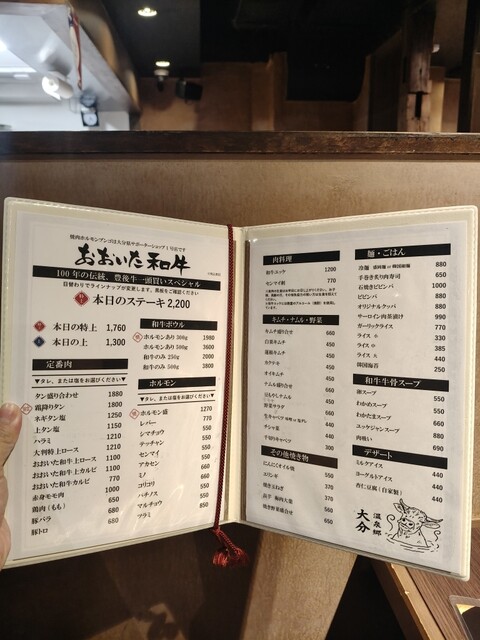 焼肉ホルモンブンゴは大分県サポーターショップ1号店です
おおいた和牛
100年の伝統、豊後牛一頭買いスペシャル
日替わりでラインナップが変更します。黒板をご確認ください
本日のステーキ 2,200
本日の特上 1,760
本日の上 1,300
定番肉
▼タレ、または塩をお選びください▼
タン盛り合わせ 1880
霜降りタン 1800
ネギタン塩 1250
上タン塩 1150
ハラミ 1210
大判特上ロース 1210
おおいた和牛上ロース 1100
おおいた和牛上カルビ 1100
おおいた和牛カルビ 1000
赤身モモ肉 650
鶏肉（もも） 680
豚バラ 680
豚トロ
和牛ボウル
ホルモンあり 300g 1980
ホルモンあり 500g 3600
和牛のみ 250g 2000
和牛のみ 500g 3800
ホルモン
▼タレ、または塩をお選びください▼
ホルモン盛 1270
レバー 770
シマチョウ 550
テッチャン 550
センマイ 550
アカセン 550
ミノ 660
コリコリ 550
ハチノス 550
マルチョウ 650
ツラミ
肉料理
和牛ユッケ 1200
センマイ刺 770
キムチ・ナムル・野菜
キムチ盛り合せ 660
白菜キムチ 450
蓮根キムチ 450
カクテキ 450
オイキムチ 450
ナムル盛り合せ 660
豆もやしナムル 450
野菜サラダ 660
450
チシャ菜 440
300
その他焼き物
にんにくオイル焼 550
エリンギ 370
焼き玉ねぎ 370
370
焼き野菜盛合せ 650
麺・ごはん
冷麺 880
手巻き炙り肉寿司 650
石焼きビビンバ 1000
ビビンバ 880
オリジナルクッパ 880
サーロイン肉茶漬け 990
ガーリックライス 770
ライス 330
ライス 385
ライス 440
韓国海苔 250
和牛牛骨スープ
卵スープ 550
わかめスープ 550
わかたまスープ 660
ユッケジャンスープ 880
肉吸い 690
デザート
ミルクアイス 440
ヨーグルトアイス 440
杏仁豆腐（自家製） 440
温泉郷
大分